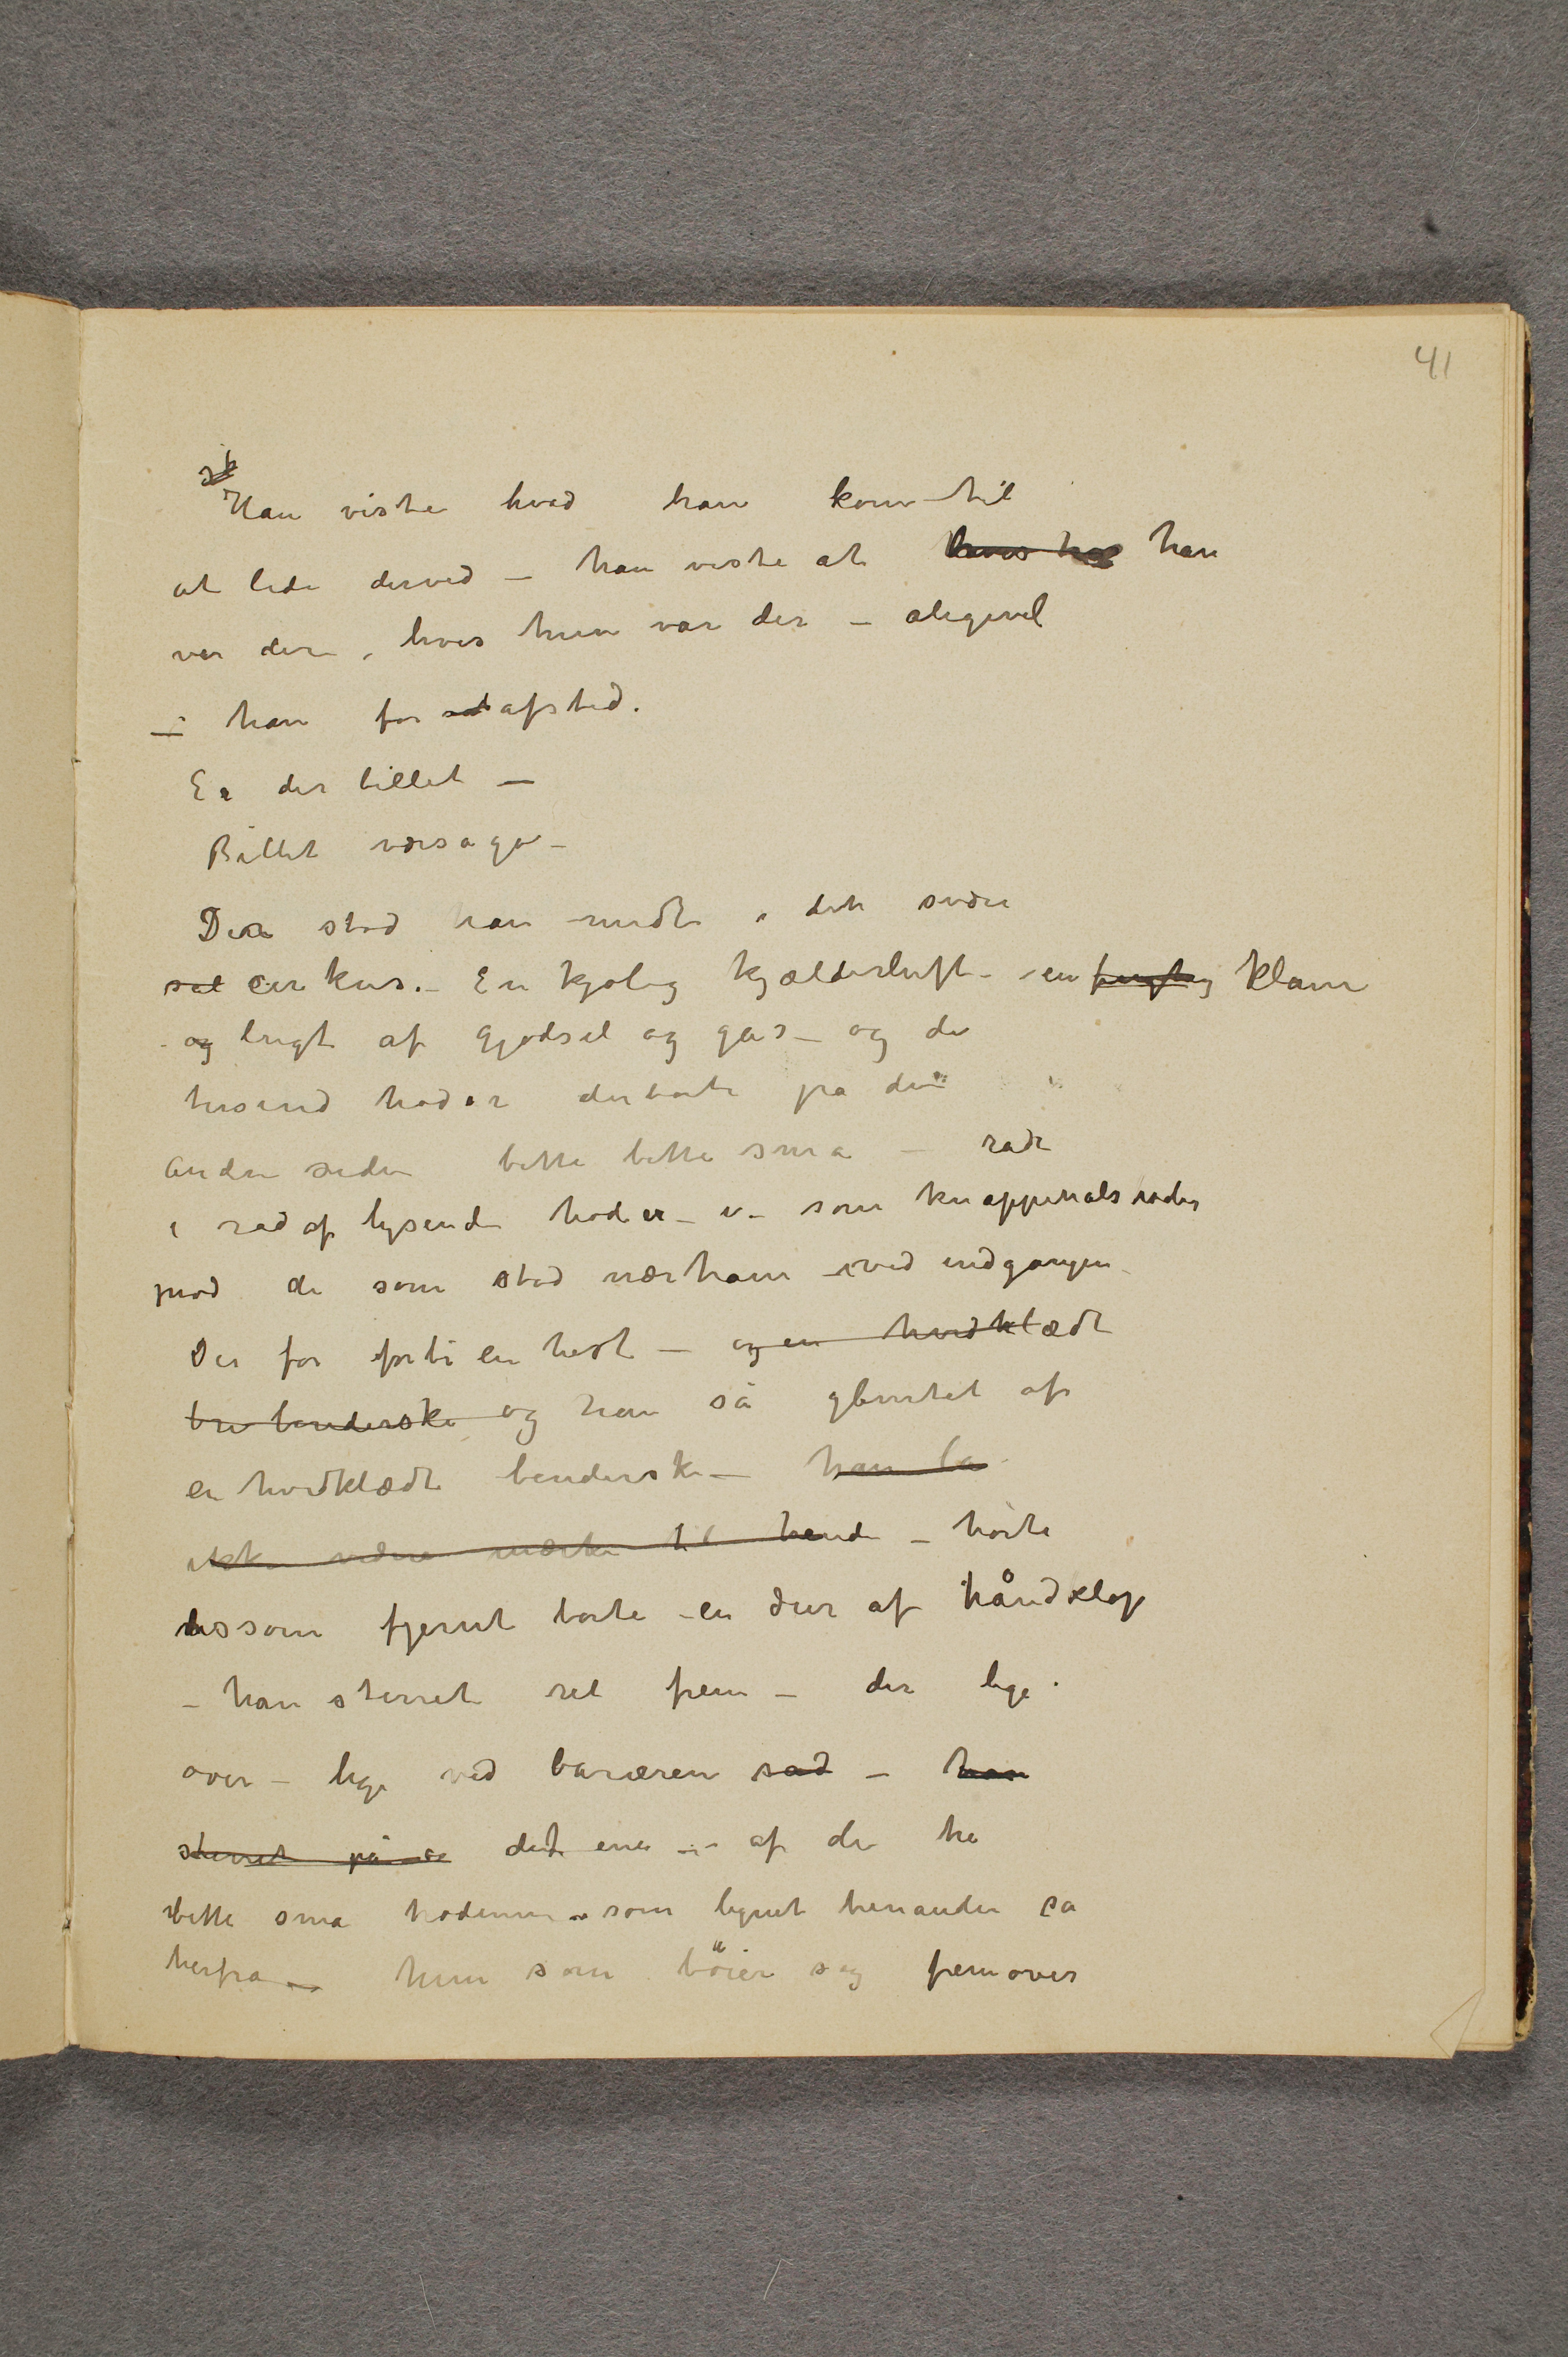 41
Han viste hvad han kom til
at lide derved – han viste at hvis han
var der, hvis hun var der – aligevel
– han for afsted.
Er der billet –
Billet værsago –
Der stod han midt i det svære
sal cirkus. – En kjølig kjælderluft – en fugtig klam
– og lugt af gjødsel og gas – og de
tusend hoder derborte på den
andre siden bitte bitte små – rad
i rad af lysende hoder – – som knappenålshoder
mod de som stod nær ham – ved indgangen –
Der for forbi en hest – og en hvidklædt
berbenderske og han så glimtet af
en hvidklædt benderske – han la
ikke videre mærke til hende – hørte
lissom fjernt borte – en dur af håndklap
– han stirret ret frem – der lige
over – lige ved bariæren sad – han
stirret på det ene – af de
bitte små hoderne – som lignet hinanden så
herfra – hun som bøier sig fremover